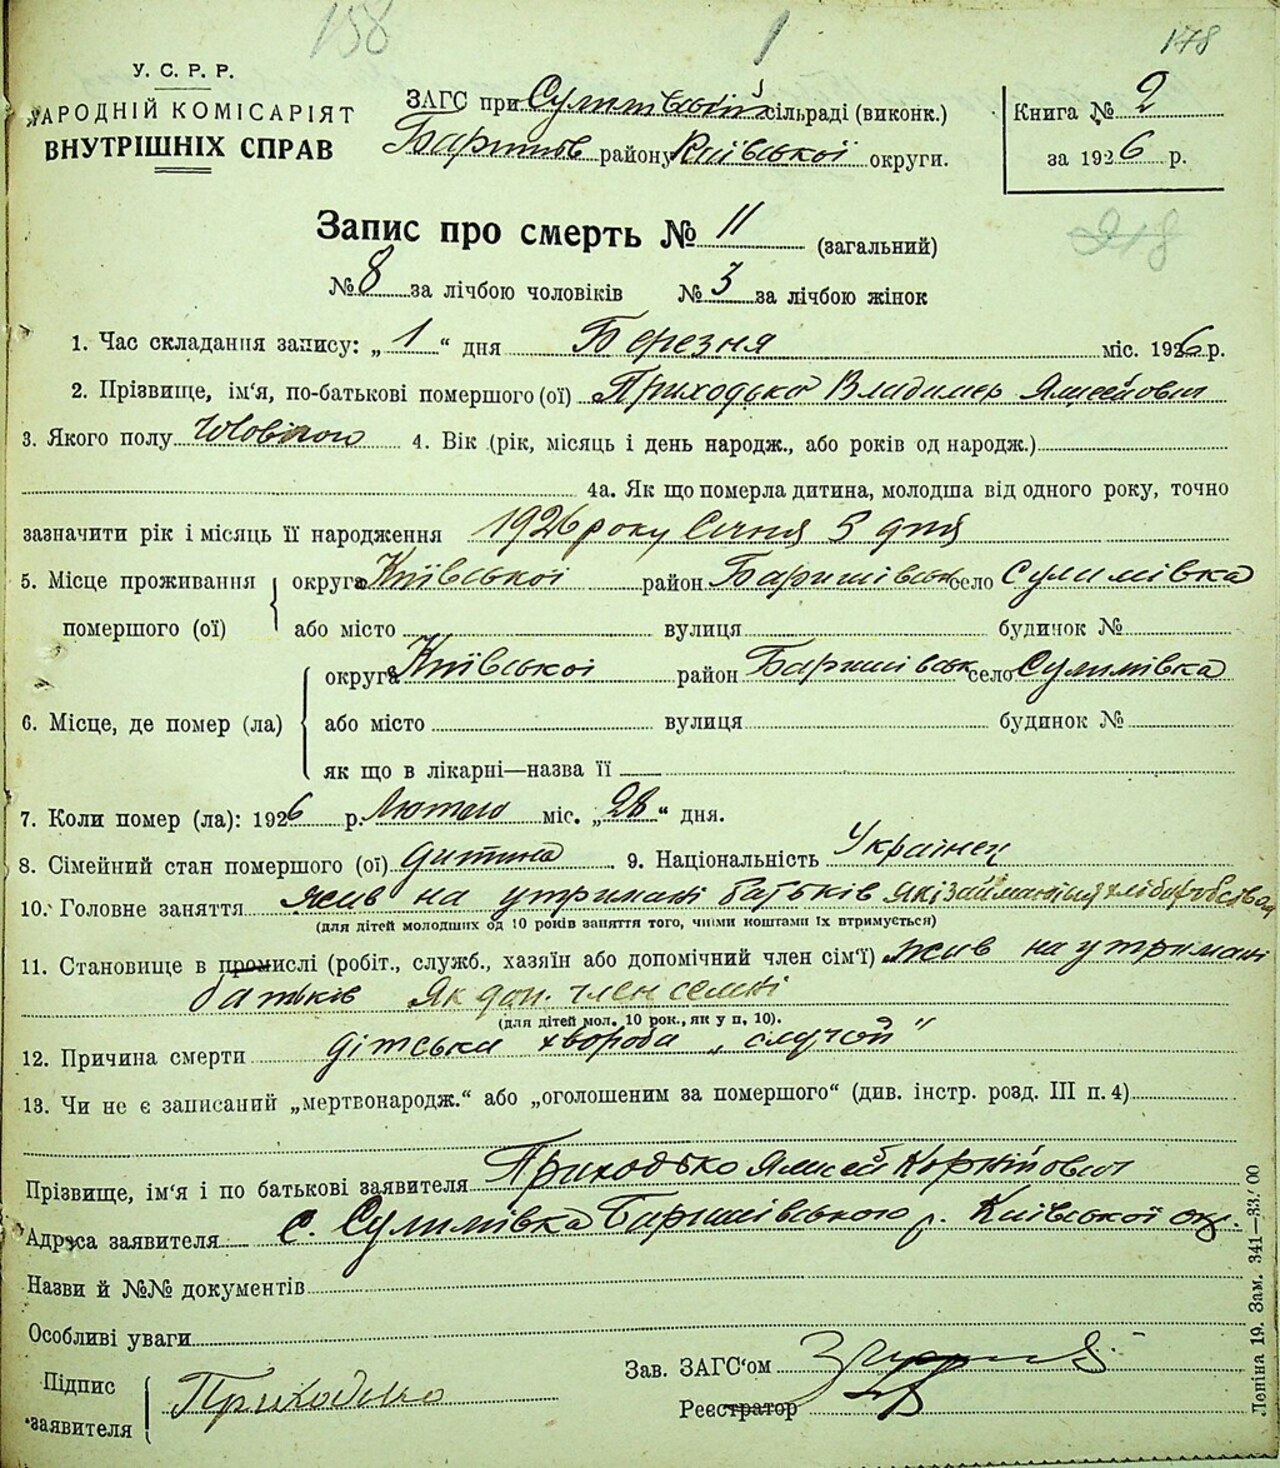 158 1 178
У. С. Р. Р.
НАРОДНІЙ КОМІСАРІЯТ
ВНУТРІШНІХ СПРАВ
ЗАГС при Сулимівській сільраді (виконк.)
Баришів району Київської округи.
Книга № 2
за 1926 р.
Запис про смерть № 11 (загальний)
218
№ 8 за лічбою чоловіків № 3 за лічбою жінок
1. Час складання запису: „ 1 “ дня Березня міс. 1926 р.
2. Прізвище, ім'я, по-батькові помершого (ої) Приходько Владимер
3. Якого полу 4. Вік (рік, місяць і день народж., або років од народж.)
4а. Як що померла дитина, молодша від одного року, точно
зазначити рік і місяць її народження 1926 року Січня 5 дня
5. Місце проживання помершого (ої) округа Київської район Баришівськ село Сулимівка
або місто вулиця будинок №
6. Місце, де помер (ла) округа Київської район Баришівськ село Сулимівка
або місто вулиця будинок №
як що в лікарні—назва її
7. Коли помер (ла): 1926 р. Лютого міс. „ 28 “ дня.
8. Сімейний стан помершого (ої) дитина 9. Національність Українец
10. Головне заняття жив на утримані батьків які займаються
(для дітей молодших од 10 років заняття того, чиїми коштами їх втримується)
11. Становище в промислі (робіт., служб., хазяїн або допомічний член сім'ї) жив на утримані
батьків Як доп. член семні
(для дітей мол. 10 рок., як у п. 10).
12. Причина смерти дітська хвороба „
13. Чи не є записаний „мертвонародж.“ або „оголошеним за помершого“ (див. інстр. розд. III п. 4)
Прізвище, ім'я і по батькові заявителя Приходько Корнійович
Адреса заявителя с. Сулимівка Баришівського р. Київської окр.
Назви й №№ документів
Особливі уваги
Підпис заявителя Приходько
Зав. ЗАГС'ом
Реєстратор
Леніна 19. Зам. 341—33100